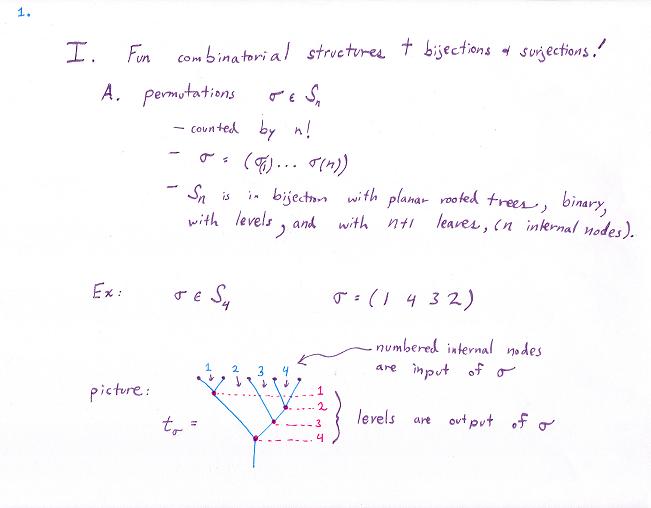 1.
I. Fun combinatorial structures + bijections & surjections!
A. permutations σ ∈ Sₙ
– counted by n!
– σ = (σ(1) ... σ(n))
– Sₙ is in bijection with planar rooted trees, binary,
with levels, and with n+1 leaves, (n internal nodes).
Ex: σ ∈ S₄ σ = (1 4 3 2)
numbered internal nodes
are input of σ
1 2 3 4
picture:
t_σ =
1
2
3
4
levels are output of σ